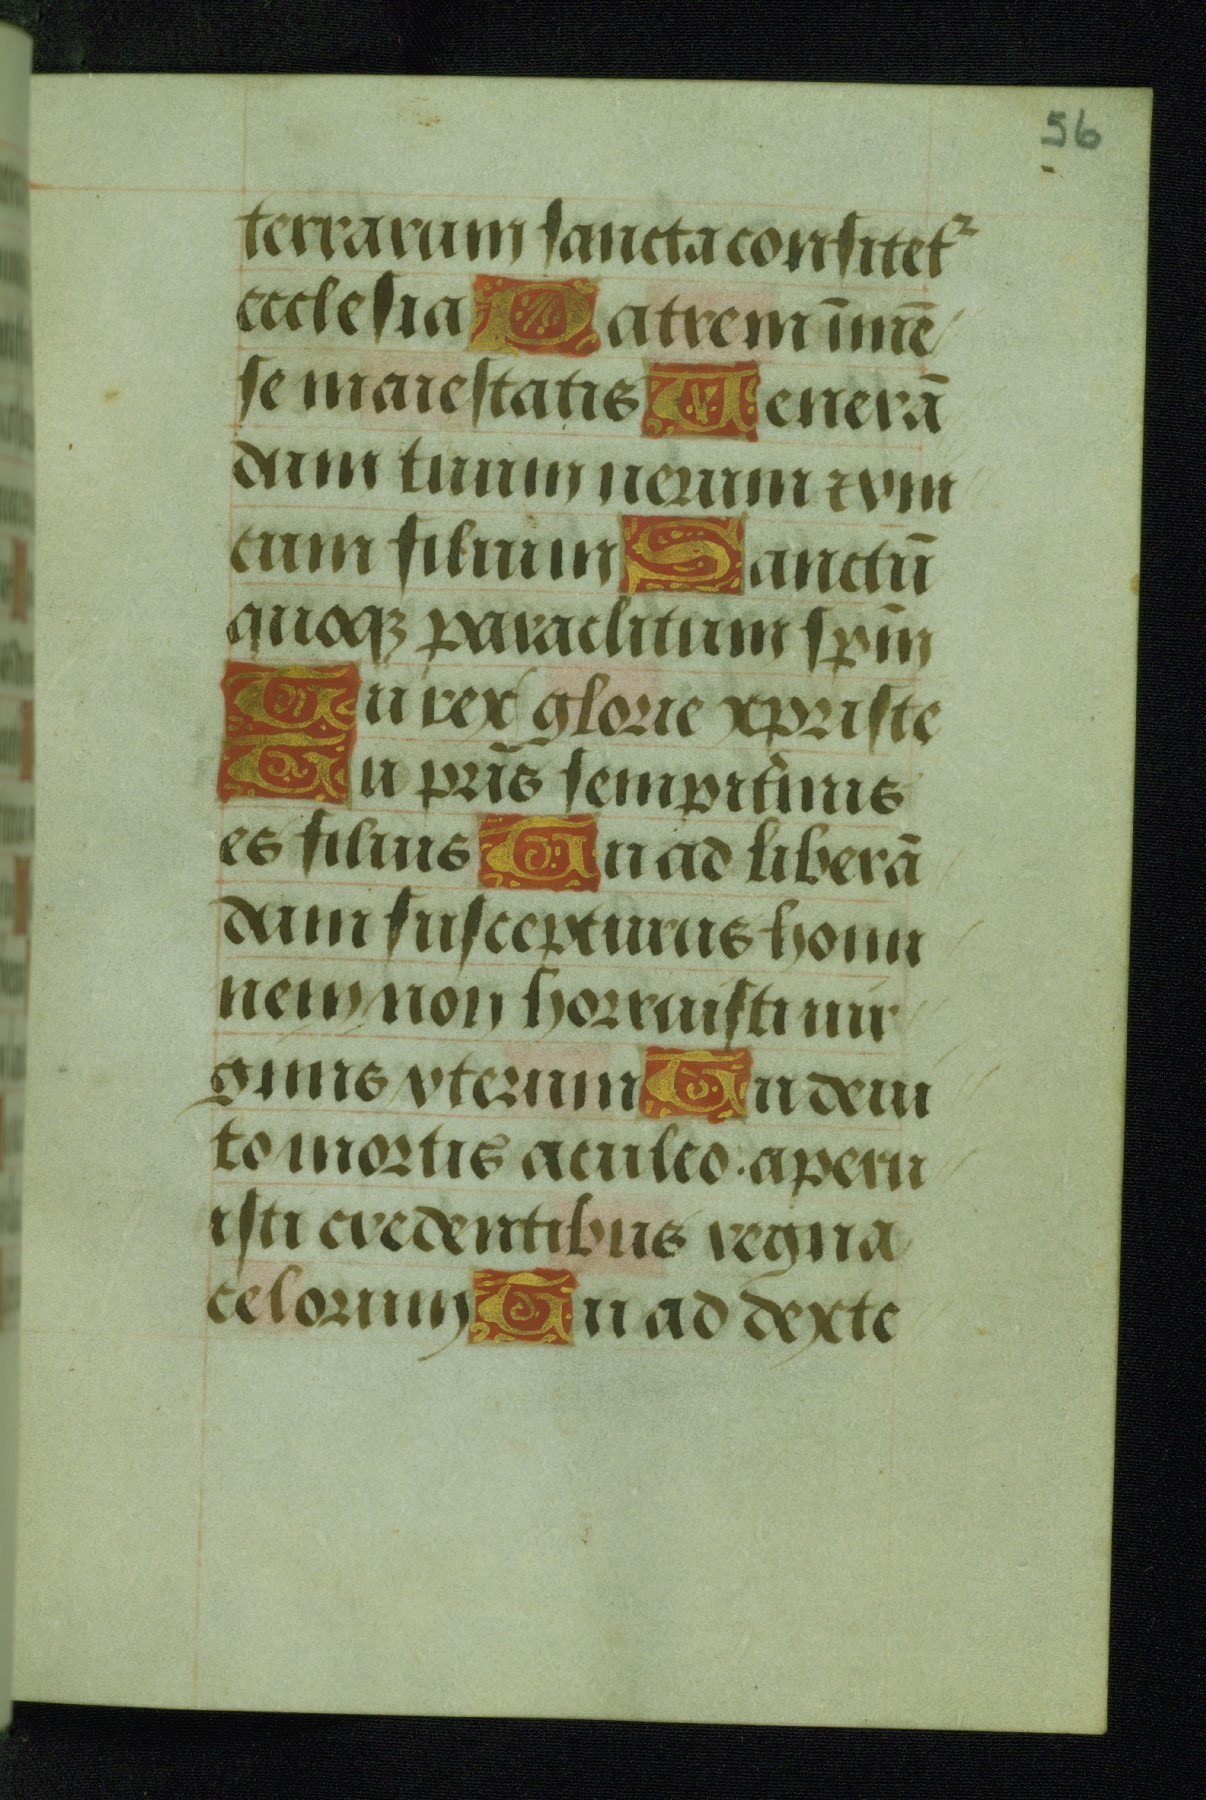 56
terrarum sancta confitetᷣ
ecclesia Patrem īmē
se maiestatis Venerā
dum tuum uerum ⁊ vni
cum filium Sanctū
quoqꝫ paraclitum spm̄
Tu rex glorie xpriste
Tu pr̄is sempitˀnus
es filius Tu ad liberā
dum suscepturus homi
nem non horruisti uir
ginis vterum Tu deui
to mortis aculeo: aperu
isti credentibus regna
celorum Tu ad dexte